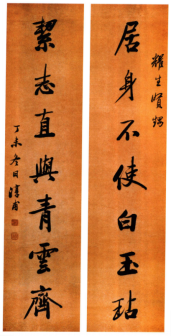 耀生賢甥
居身不使白玉玷
絜志直與青雲齊
丁未冬日